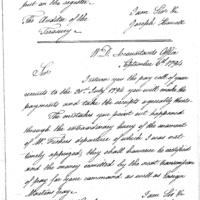 put on the register
The Auditor of the I am Sir &c
Treasury Joseph Howell
W.D. Accountants Office
September 6th 1794
Sir
I return you the pay roll of your
to the 31st July 1794 you will make the
payments and take the receipts agreeably thereto.
The mistakes you point out happened
through the extraordinary hurry of the moment
of Mr. departure of which I was not
timely apprized, they shall however be rectified
and the money omitted by the next
of pay for your command as well as for
pay.
I am Sir &c